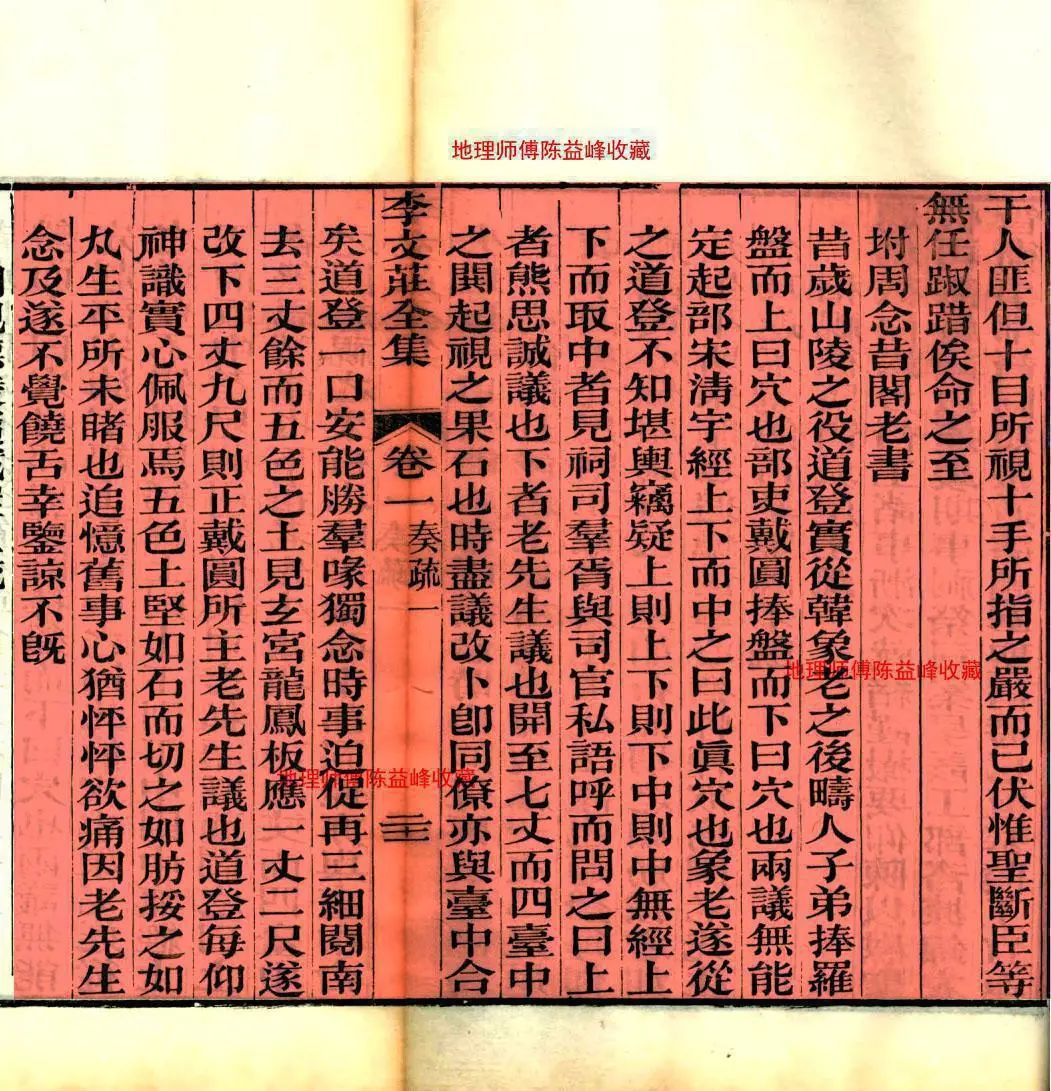 地理师傅陈益峰收藏
干人匪但十目所視十手所指之嚴而已伏惟聖斷臣等
無任踧踖俟命之至
坿周念昔閣老書
昔歲山陵之役道登實從韓象老之後疇人子弟捧羅
盤而上曰穴也部吏戴圓捧盤而下曰穴也兩議無能
定起部宋清宇經上下而中之曰此眞穴也象老遂從
之道登不知堪輿竊疑上則上下則下中則中無經上
下而取中者見祠司羣胥與司官私語呼而問之曰上
者熊思誠議也下者老先生議也開至七丈而四臺中
之閧起視之果石也時盡議改卜卽同僚亦與臺中合
李文莊全集 卷一 奏疏一 二十三
矣道登一口安能勝羣喙獨念時事迫促再三細閱南
去三丈餘而五色之土見玄宮龍鳳板應一丈二尺遂
改下四丈九尺則正戴圓所主老先生議也道登每仰
神識實心佩服焉五色土堅如石而切之如肪挼之如
丸生平所未睹也追憶舊事心猶怦怦欲痛因老先生
念及遂不覺饒舌幸鑒諒不旣
地理师傅陈益峰收藏
地理师傅陈益峰收藏